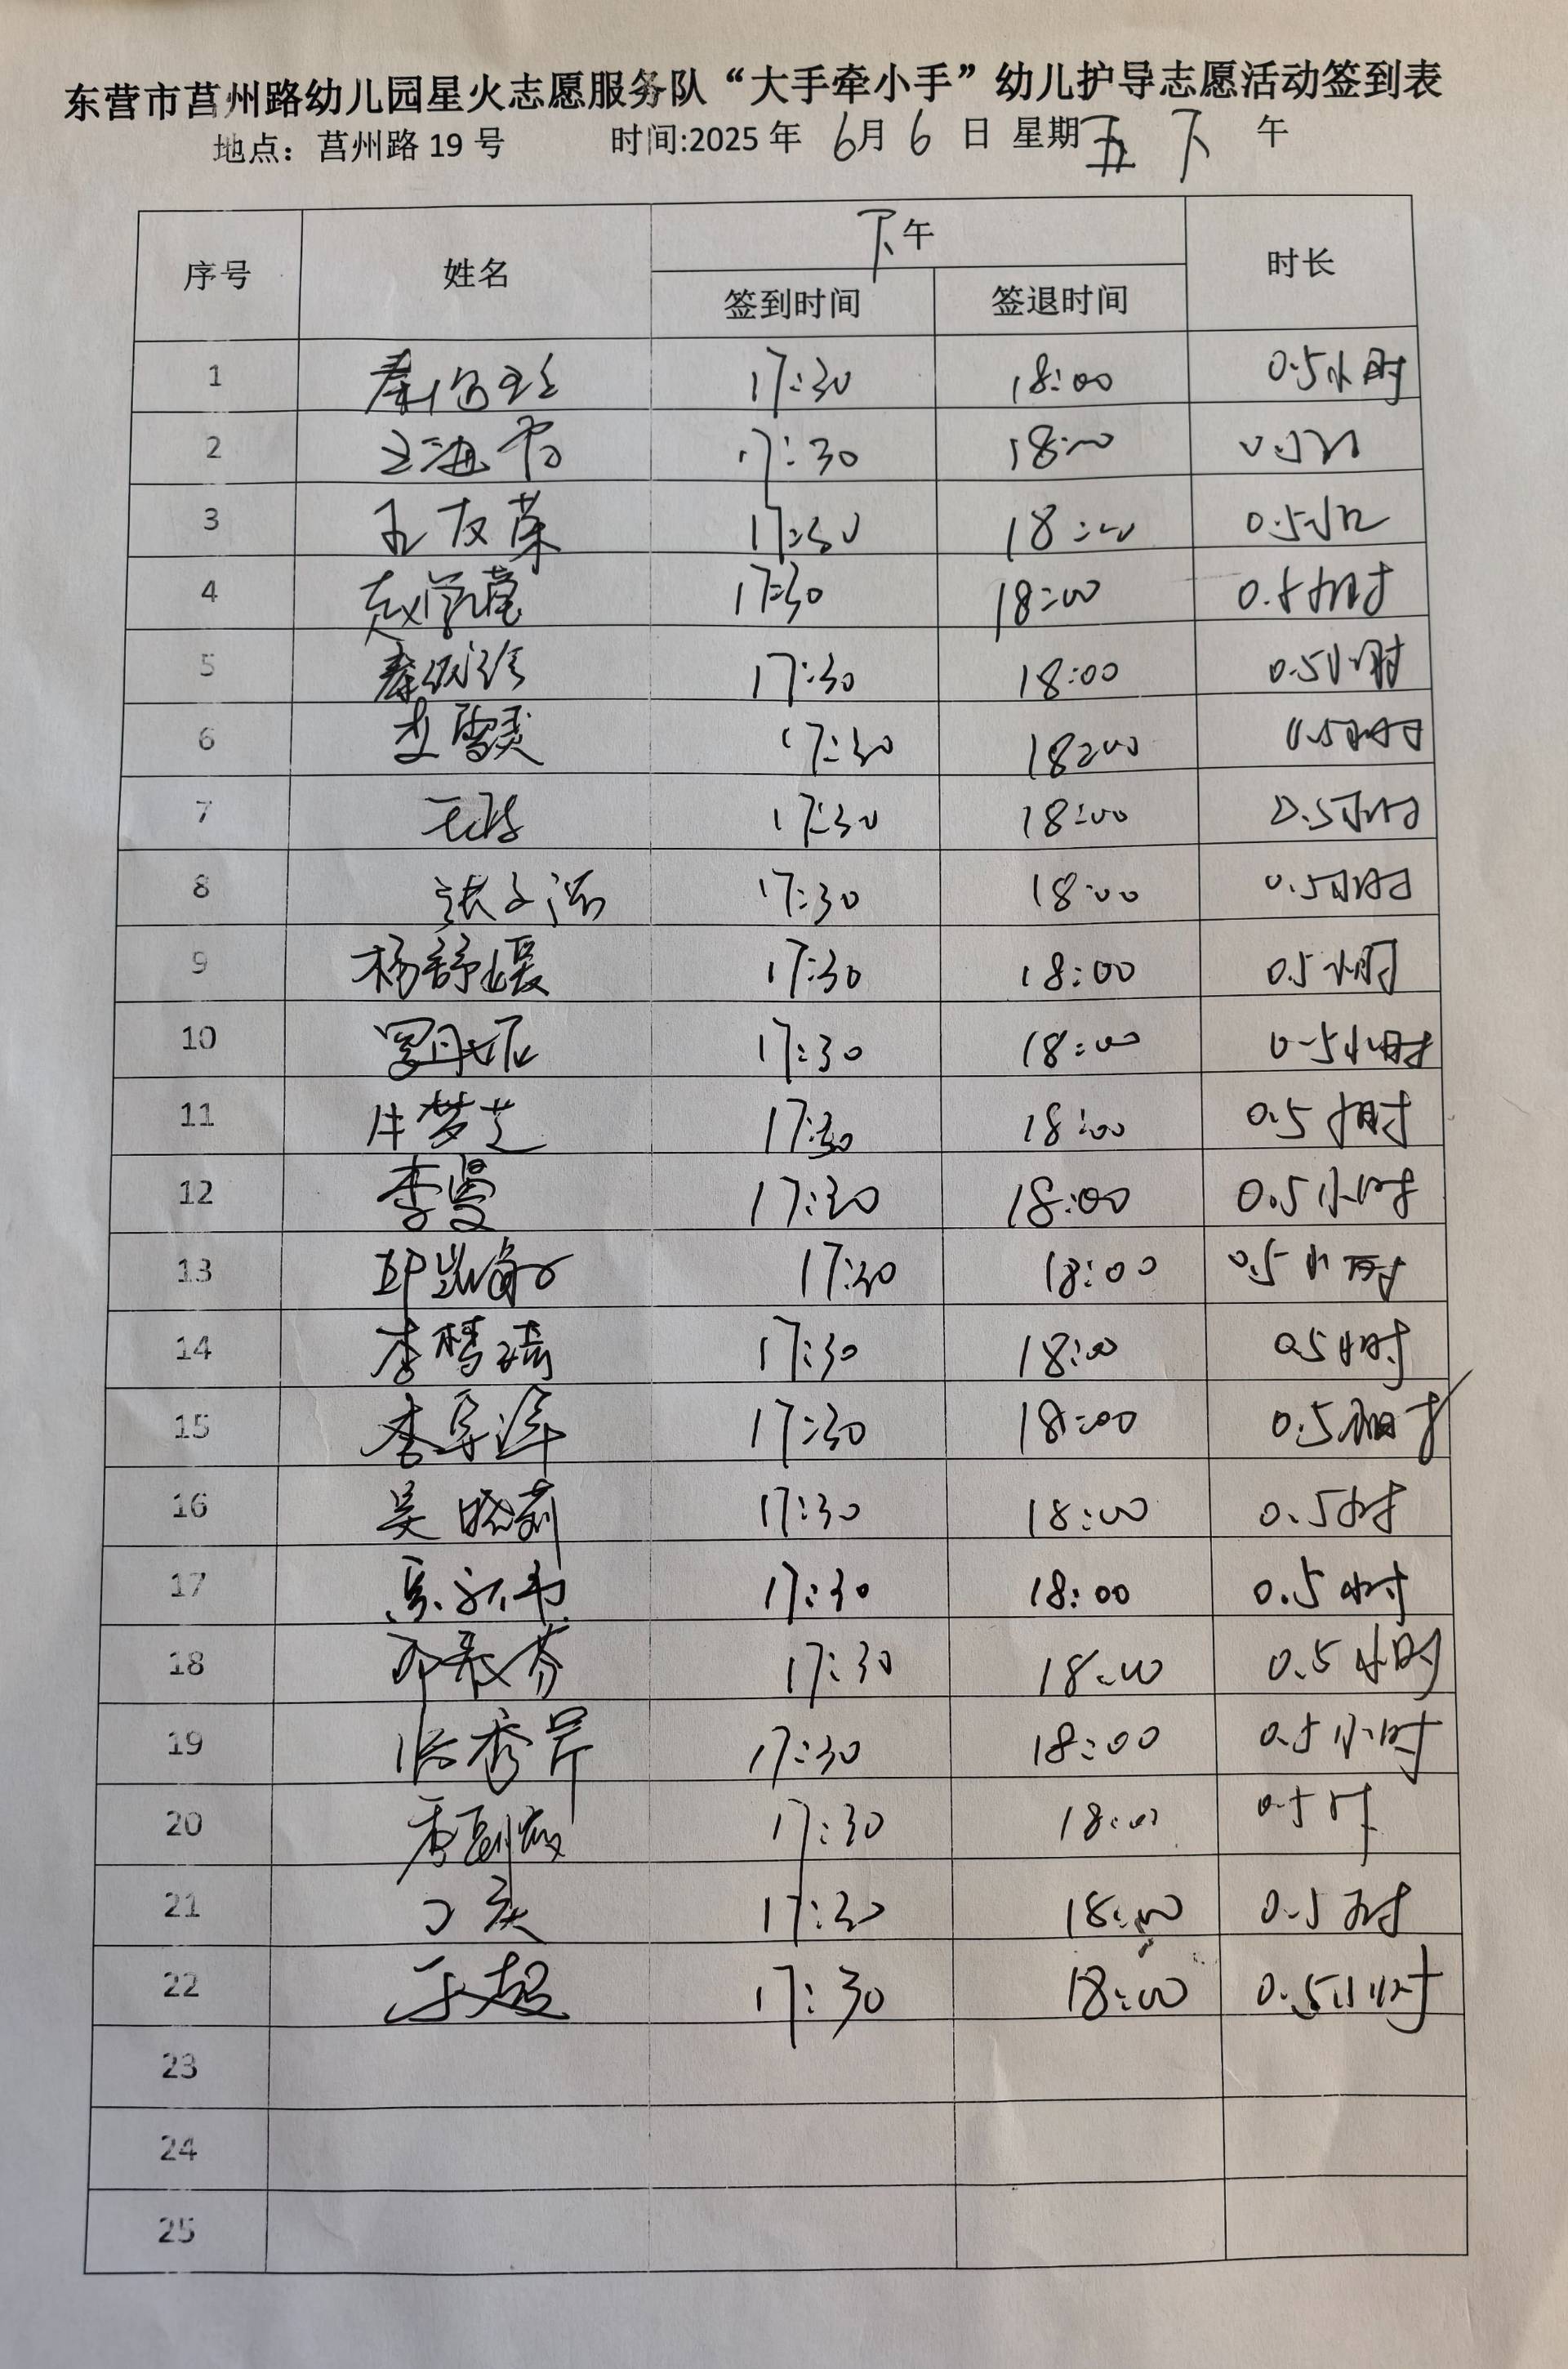 东营市莒州路幼儿园星火志愿服务队“大手牵小手”幼儿护导志愿活动签到表
地点：莒州路 19 号 时间:2025 年 6月 6 日 星期五 下 午
序号 姓名 下午 时长
签到时间 签退时间
1 17:30 18:00 0.5小时
2 王海 17:30 18:00
3 王友荣 17:30 18:00 0.5小时
4 赵学莲 17:30 18:00 0.5小时
5 秦 17:30 18:00 0.5小时
6 李雪 17:30 18:00 0.5小时
7 17:30 18:00 0.5小时
8 张文 17:30 18:00 0.5小时
9 杨舒媛 17:30 18:00 0.5小时
10 罗丹妮 17:30 18:00 0.5小时
11 牛梦芝 17:30 18:00 0.5小时
12 李曼 17:30 18:00 0.5小时
13 17:30 18:00 0.5小时
14 李梦琦 17:30 18:00 0.5小时
15 李 17:30 18:00 0.5小时
16 吴晓莉 17:30 18:00 0.5小时
17 17:30 18:00 0.5小时
18 邓 芬 17:30 18:00 0.5小时
19 张秀芹 17:30 18:00 0.5小时
20 17:30 18:00 0.5时
21 17:30 18:00 0.5小时
22 于超 17:30 18:00 0.5小时
23
24
25